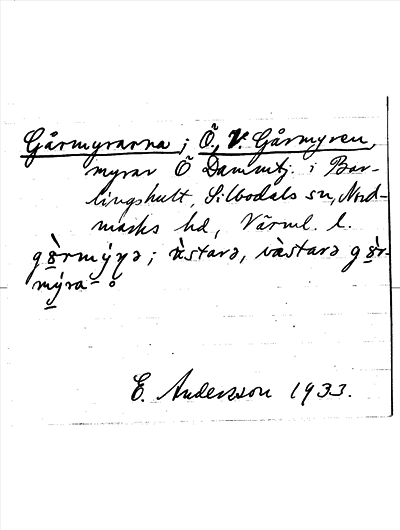 Gårmyrarna; Ö., V. Gårmyren,
myrar Ö Dammtj. i Bar-
lingshult, Silbodals sn, Nord-
marks hd, Värml. l.
västarə
E. Andersson 1933.